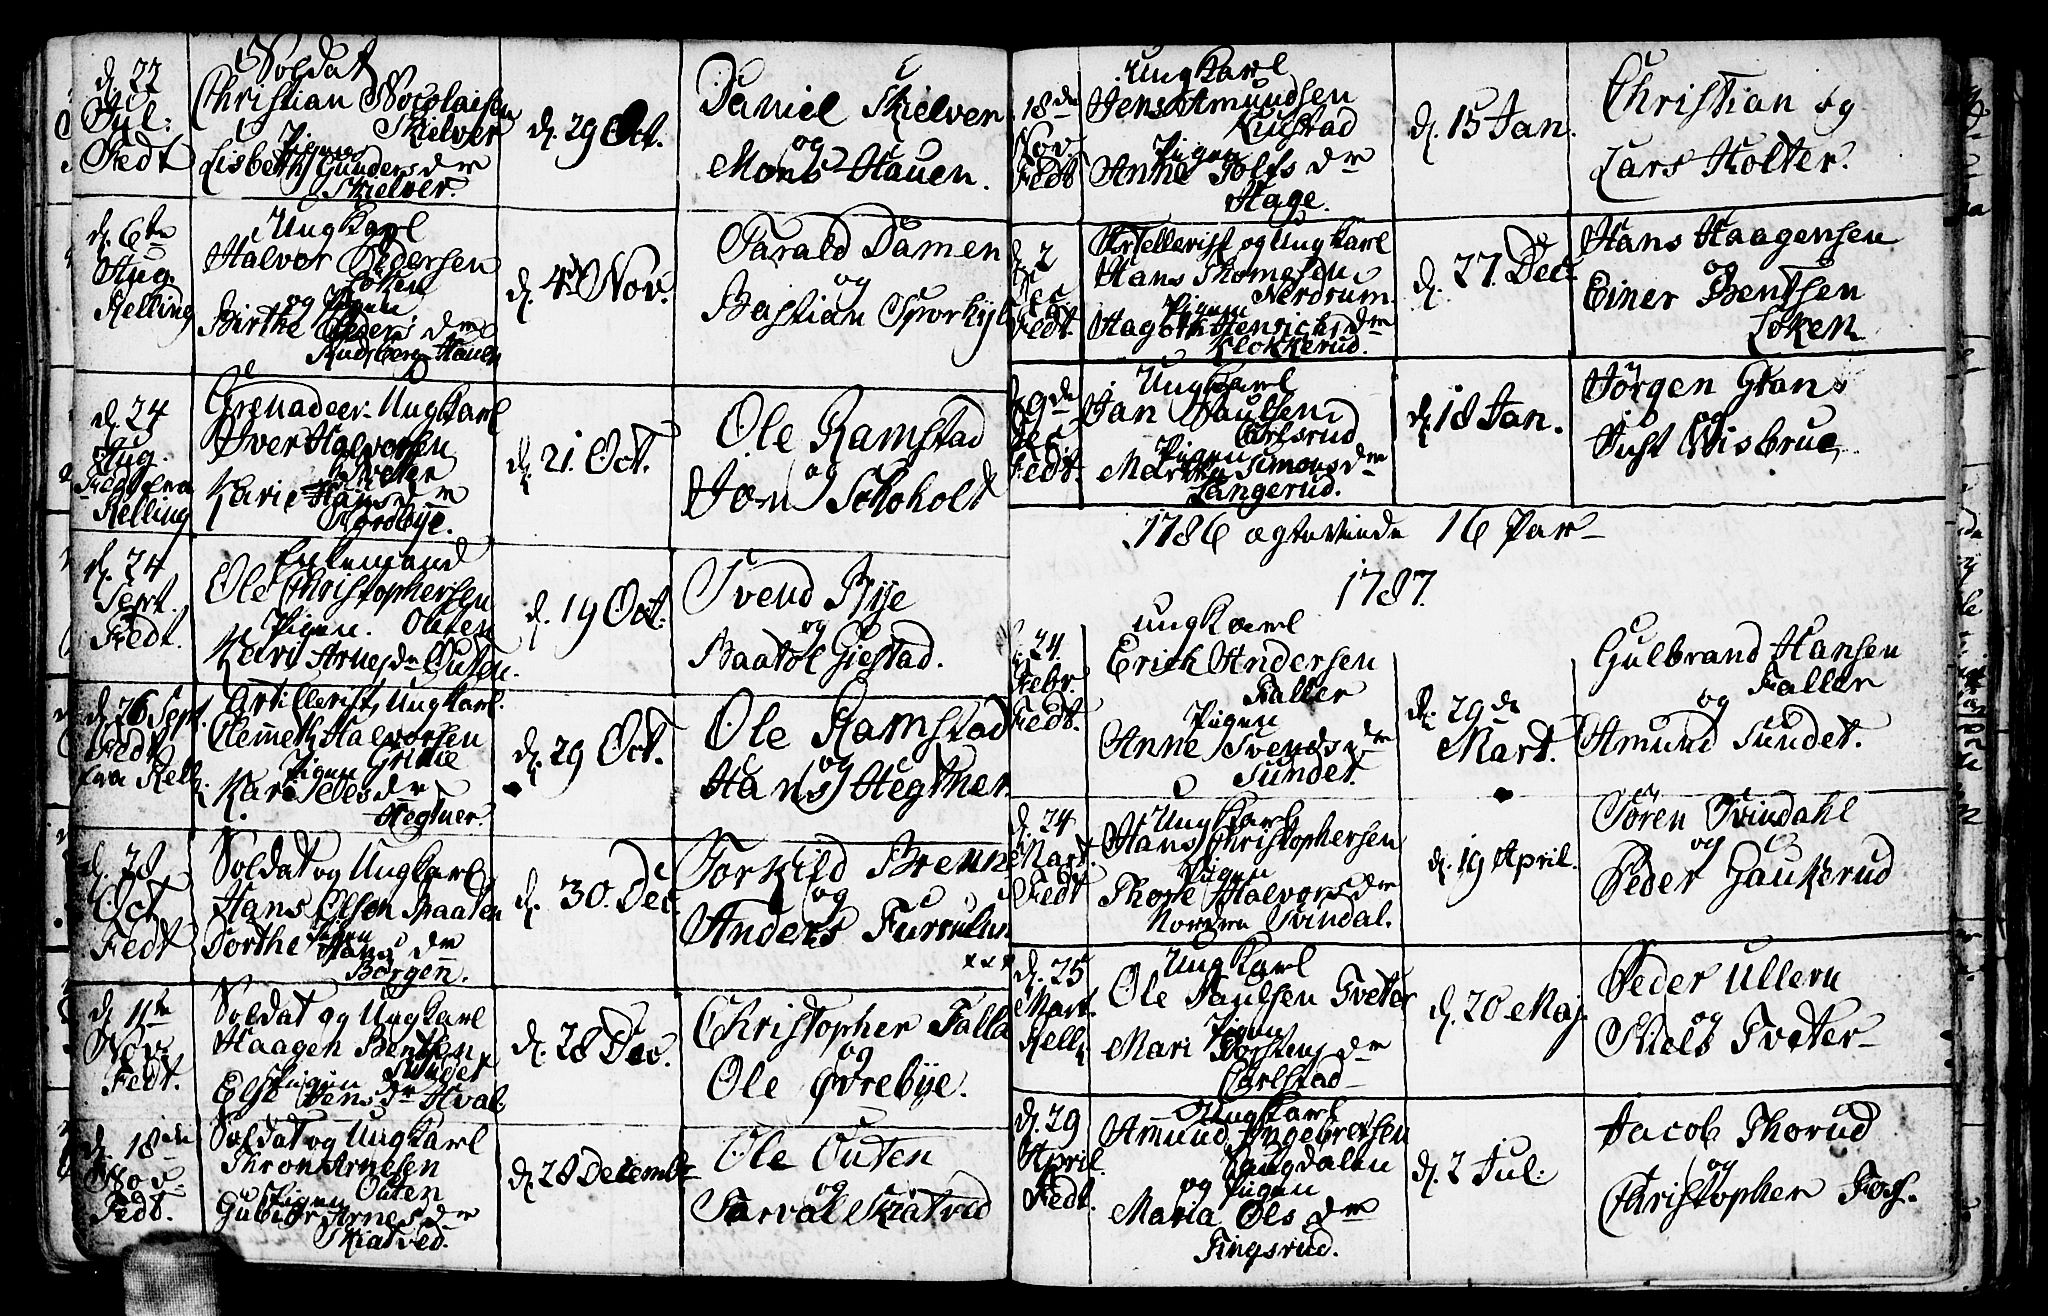 d. 22
Jul:
Fedt
Soldat
Christian Nicolaisen
Skielver
Pigen
Lisbeth Gundersdr
Skielver.
d. 29 Oct.
Daniel Skielver
og
Mons Hauen.
d. 6te
Aug.
Kelling
Ungkarl
Halvor Pedersen
Løken
og Pigen
Birthe Peders dr
Rudsberg Hauen
d. 4 Nov.
Tarald Damen
og
Bastian Sporkjl
d. 24
Aug.
Fedt fra
Kelling
Grenadeer Ungkarl
Iver Halvorsen
Tveter
Karie Hansdr
Nordbye.
d. 21. Oct.
Ole Ramstad
og
Jon Skoholt
d. 24
Sept.
Fedt.
Enkemand
Ole Christophersen
Pigen. Outen
Kari Arnesdr Outen.
d. 19 Oct.
Svend Bye
og
Baatol Giestad.
d. 26 Sept.
Fedt
fra Kell.
Artillerist, Ungkarl.
Clemeth Halvorsen
Pigen Grime
Kari Jelesdr
Hegtner.
d. 29 Oct.
Ole Ramstad
og
Hans Hegtner
d. 28
Oct
Fedt
Soldat og Ungkarl
Hans Elson Braaten
Pigen
Dorthe Hans dr
Borgen.
d. 30. Dec.
Torkild Brenn
og
Anders Furrulus
d. 11te
Nov.
Fedt.
Soldat og Ungkarl
Haagen Bentsen
Pigen Sundet
Else Jensdr Hval.
d. 28 Dec.
Christopher Falla
og
Ole Øvrebye.
d. 18de
Nov.
Fedt.
Soldat og Ungkarl
Thron Arnesen
Pigen Outen
Gubiør Arnesdr
Skiatved.
d. 28 Decembr
Ole Outen
og
Tarval Skiatved
18de
Nov
Fedt
Ungkarl
Jens Amundsen
Kiustad
Pigen
Anne Tolfs dr
Hage.
d. 15 Jan.
Christian og
Lars Holter.
d. 2
Dec
Fedt.
Artellerist og Ungkarl
Hans Thomesen
Nerdrum.
Pigen
Hagoth Henrichsdr
Klokkerud.
d. 27. Dec.
Hans Haagensen
og
Einer Bentsen
Løken
d. 9de
Dec
Fedt.
Ungkarl
Jan Paulsen
Carlsrud
Pigen
Martha Simonsdr
Langerud.
d. 18 Jan.
Jørgen Grans
og
Sichf Wisbrue
1786 ægtevinde 16 Par
1787.
d. 24.
Febr.
Fedt.
Ungkarl
Erich Andersen
Faller
Pigen
Anne Svendsdr
Sundet.
d. 29de
Mart.
Gulbrand Hansen
Faller
og
Amund Sundet.
d. 24
Mart.
Fedt
Ungkarl
Hans Christophersen
Pigen
Thore Halvorsdr
Nordre Svindal.
d. 19 April.
Søren Svindahl
og
Peder Gaukerud
d. 25
Mart.
Kell
Ungkarl
Ole Paulsen Tveter
Pigen
Mari Torstens dr
Carlstad
d. 20 Maj.
Peder Ullern
og
Niels Tveter
d. 29
April.
Fedt.
Ungkarl
Amund Ingebretsen
Langdalen
og Pigen
Maria Ols dr
Tingsrud.
d. 2 Jul:
Jacob Thorud
og
Christopher Fos.